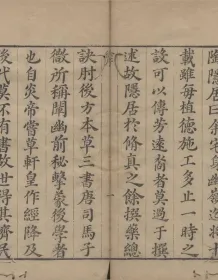 隱居曰余宿慕幽嶺迨將十
載雖每植德施工多止一時之
設可以傳芳遠裔者莫過于撰
述故隱居於修真之餘撰藥總
訣肘後方本草三書唐司馬子
微所稱闡幽前秘擊蒙後學者
也自炎帝嘗草軒皇作經降及
後代莫不有書故世得其齊民